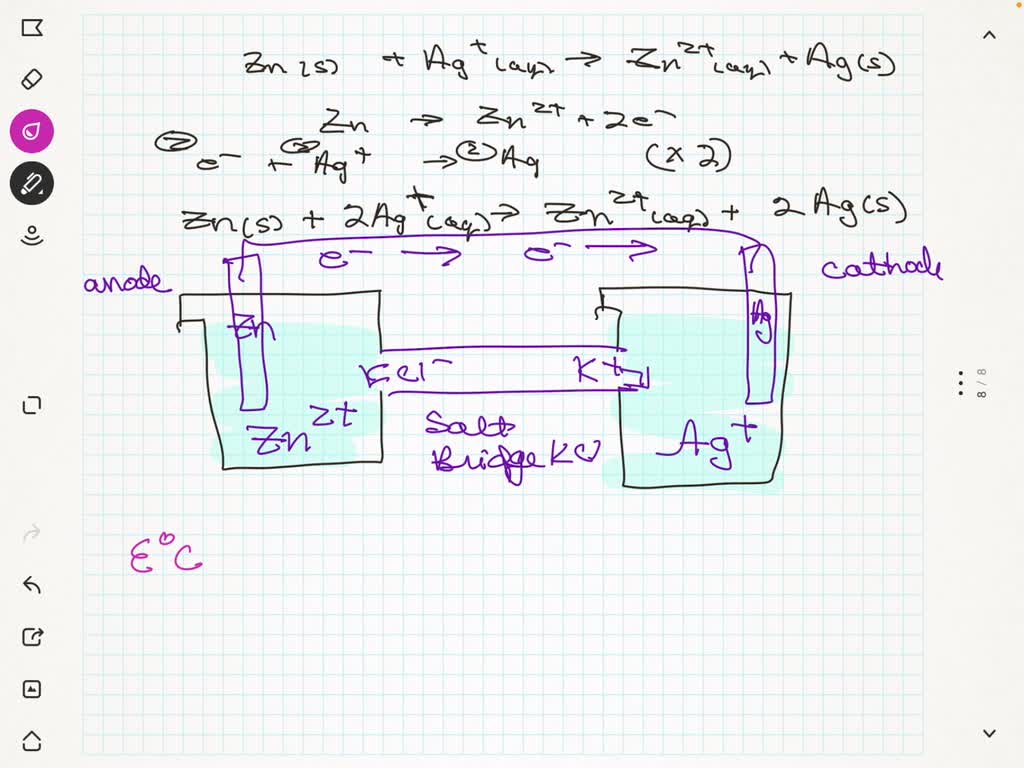 Zn(s) + Ag⁺(aq) → Zn²⁺(aq) + Ag(s)
Zn → Zn²⁺ + 2e⁻
② e⁻ + ② Ag⁺ → ② Ag (x 2)
Zn(s) + 2Ag⁺(aq) → Zn²⁺(aq) + 2Ag(s)
e⁻ → e⁻ →
anode
cathode
Zn
Ag
Cl⁻
K⁺
Zn²⁺
Salt
Bridge KCl
Ag⁺
E°C
8 / 8